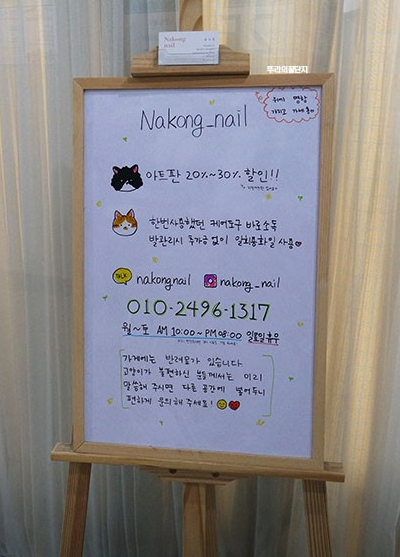 Nakong
nail
뚜라의꿀단지
위에 명함
가지고 가세용
Nakong_nail
아트판 20%~30% 할인!!
한번사용했던 케어도구 바로소독
발관리시 추가금 없이 일회용화일 사용
TALK nakongnail nakong_nail
010-2496-1317
월~토 AM 10:00~PM 08:00 일요일휴무
가게에는 반려묘가 있습니다
고양이가 불편하신 분들께서는 미리
말씀해 주시면 다른 공간에 넣어두니
편하게 문의해 주세요!